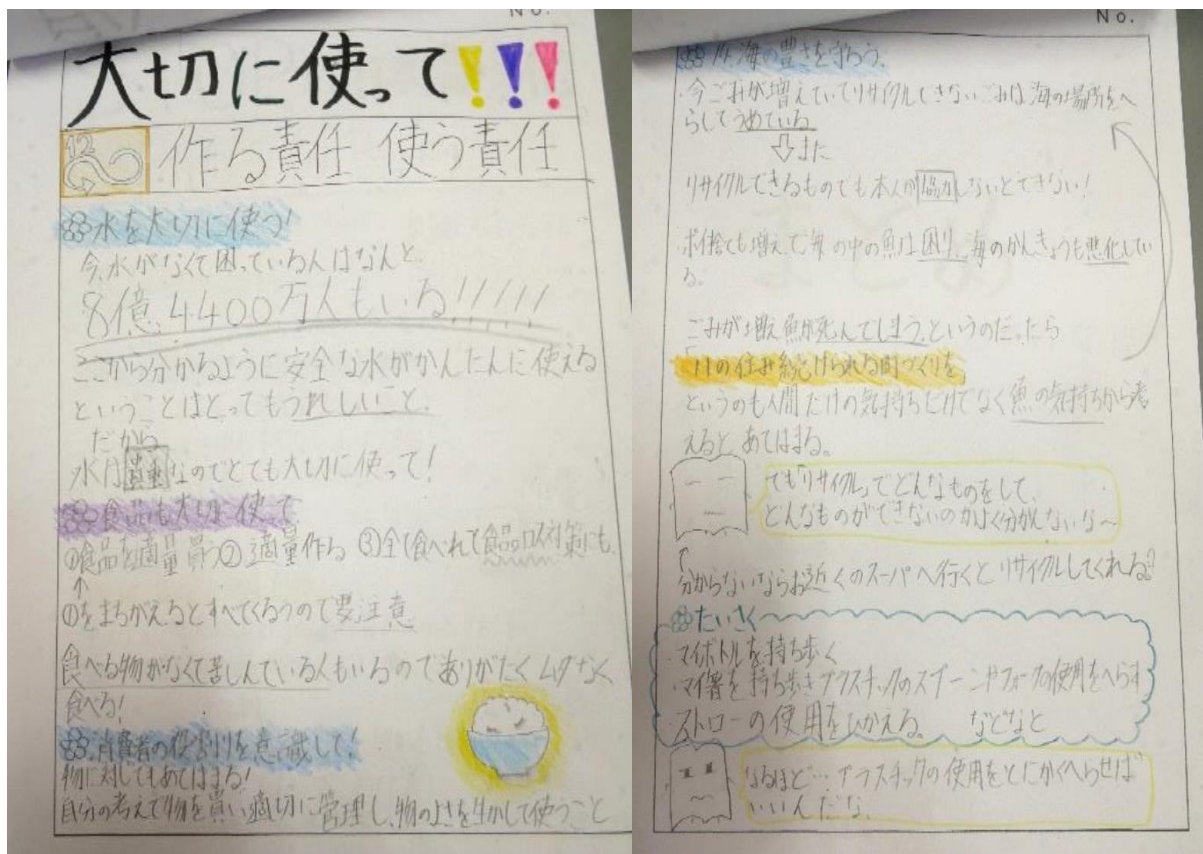 No.
大切に使って!!!
12
作る責任 使う責任
水を大切に使う!
今、水がなくて困っている人はなんと、
8億4400万人もいる!!!!!
ここから分かるように安全な水がかんたんに使える
ということはとってもうれしいこと、
だから
水は貴重なのでとても大切に使って!
食品も大切に使って
①食品を適量買う② 適量作る ③全て食べれて食品ロス対策にも、
↑
①をまちがえるとすべてくるうので要注意
食べる物がなくて苦しんでいる人もいるのでありがたくムダなく
食べる!
消費者の役割りを意識して!
物に対してもあてはまる!
自分の考えで物を買い適切に管理し、物のよさを生かして使うこと
No.
14.海の豊さを守ろう。
・今ごみが増えていてリサイクルできないごみは海の場所をへ
らしてうめている
⇩また
リサイクルできるものでも本人が協力しないとできない!
・ポイ捨ても増えて、海の中の魚は困り、海のかんきょうも悪化してい
る。
ごみが増え魚が死んでしまう。というのだったら
「11の住み続けられる町づくりを
というのも人間だけの気持ちだけでなく魚の気持ちから考
えると、あてはまる。
でも「リサイクル」でどんなものをして、
どんなものができないのかよく分かんないな〜
↑
分からないならお近くのスーパへ行くとリサイクルしてくれる?
たいさく
・マイボトルを持ち歩く
・マイ箸を持ち歩きプラスチックのスプーンやフォークの使用をへらす
・ストローの使用をひかえる。 などなど
なるほど…プラスチックの使用をとにかくへらせば
いいんだな。